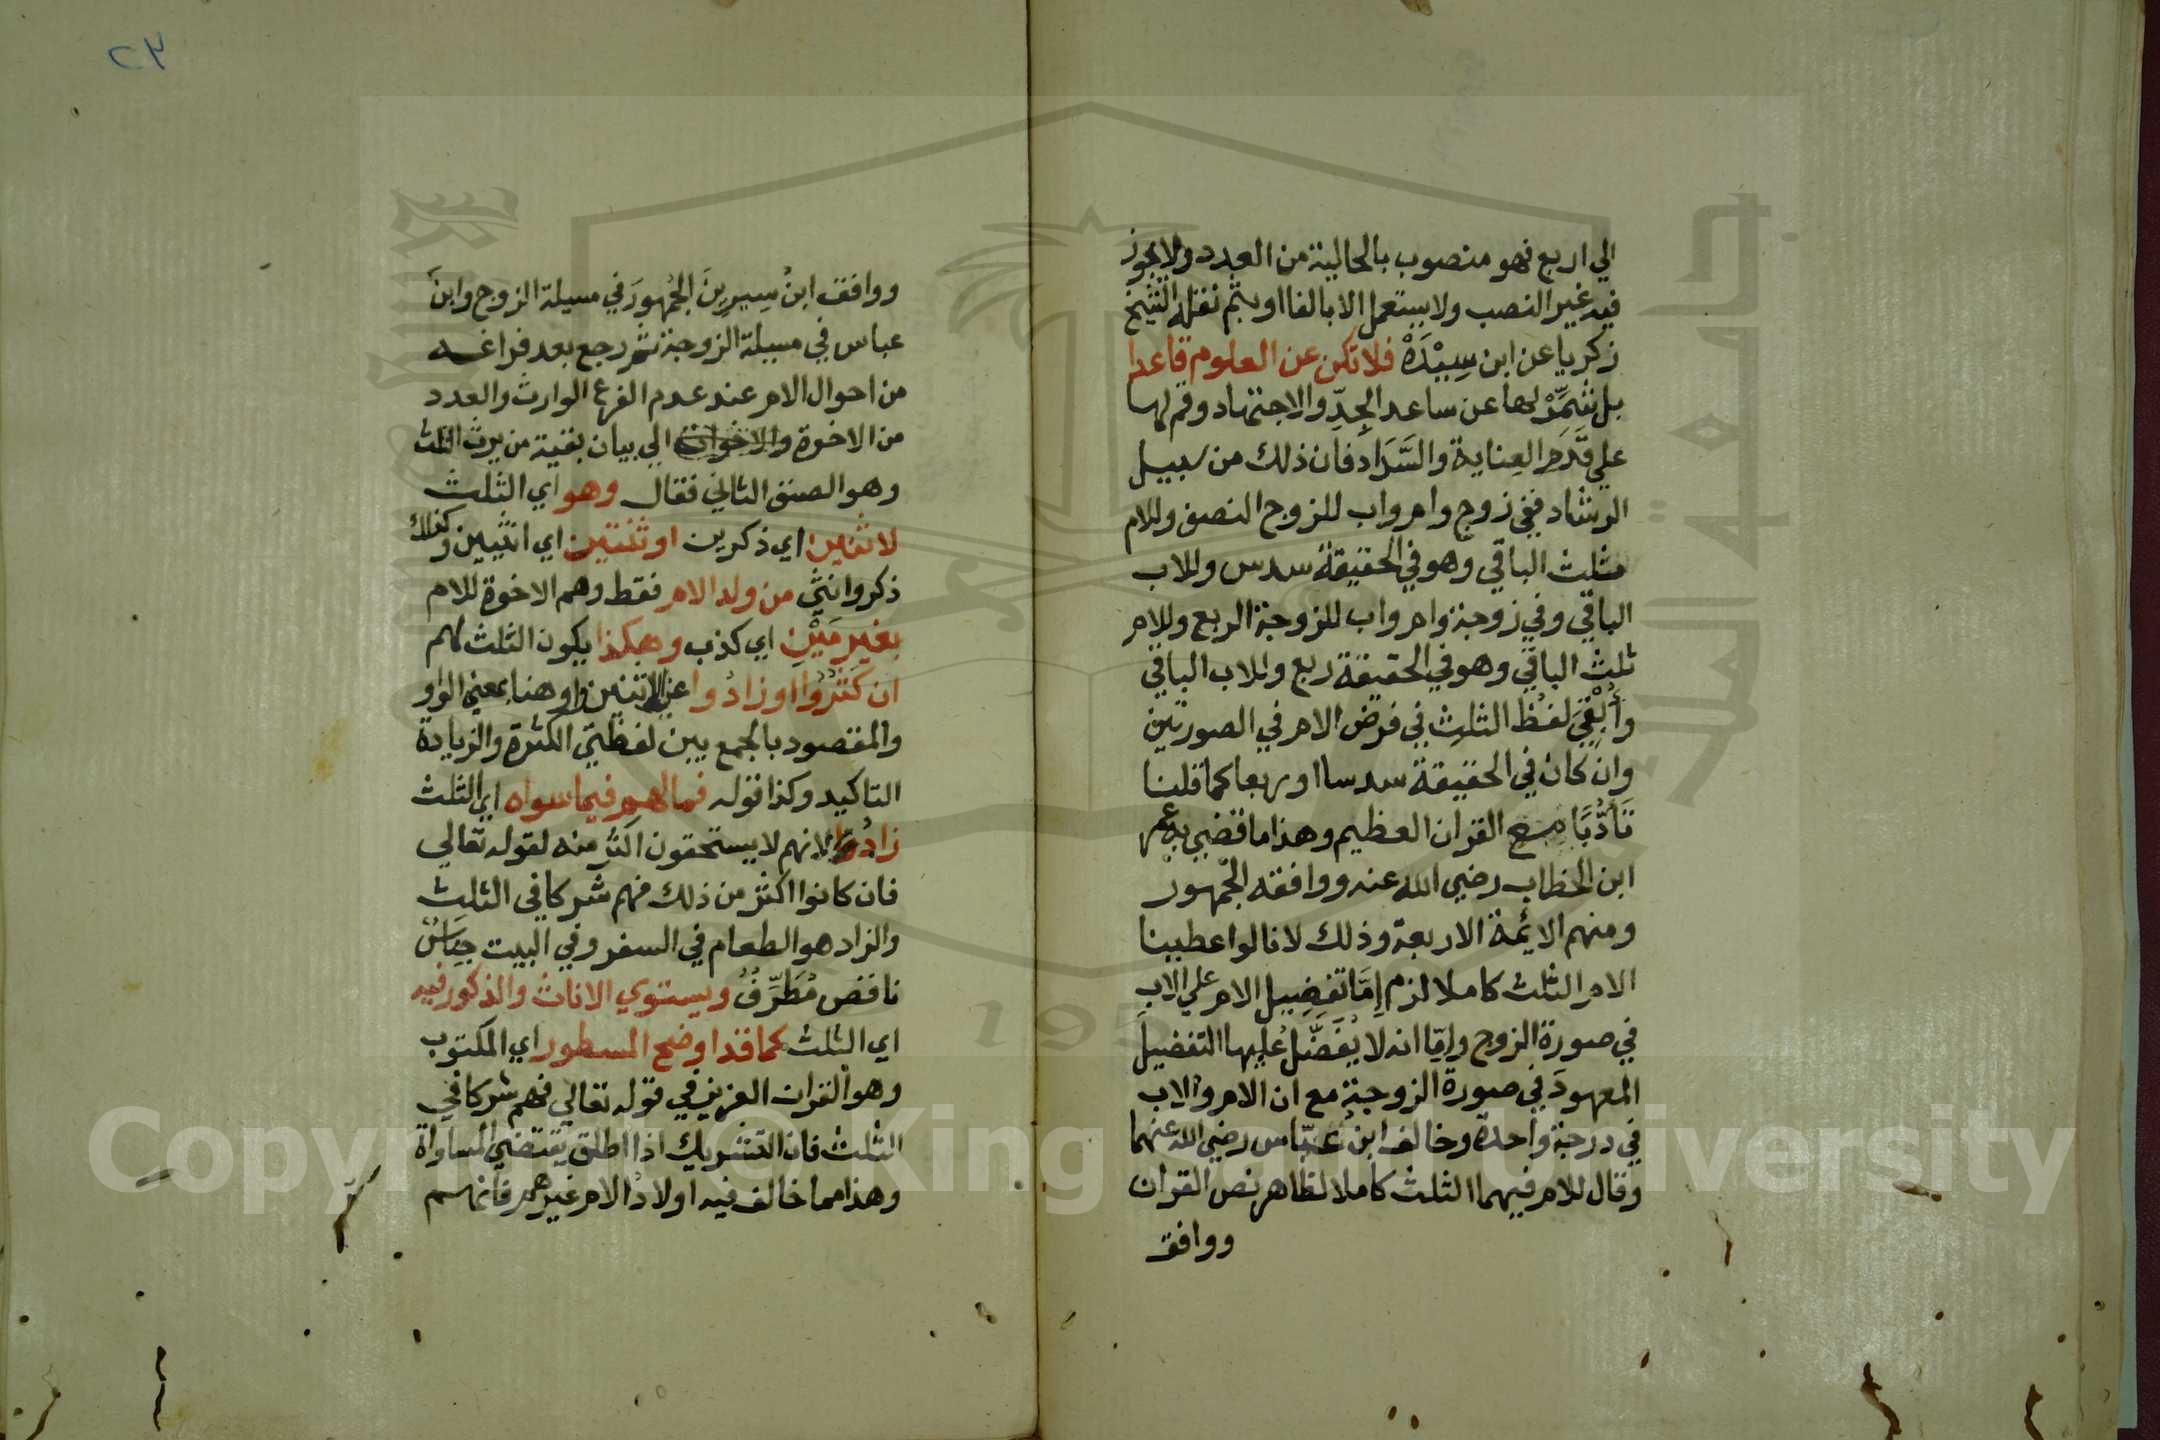 الي اربع فهو منصوب بالحالية من العدد ولا يجوز
فيه غير النصب ولا يستعمل الا بالفا او بثم نقله الشيخ
زكريا عن ابن سِيْدَهْ فلا تكن عن العلوم قاعدا
بل شَمِّرْ لها عن ساعد الجِدِّ والاجتهاد وقم لها
علي قَدَمِ العِناية والسَّدَادِ فان ذلك من سبيل
الرشاد ففي زوج وام واب للزوج النصف وللام
ثلث الباقي وهو في الحقيقة سدس وللاب
الباقي وفي زوجة وام واب للزوجة الربع وللام
ثلث الباقي وهو في الحقيقة ربع وللاب الباقي
وأُبْقِيَ لفظُ الثلثِ في فرض الام في الصورتين
وان كان في الحقيقة سدسا او ربعا كما قلنا
تَأَدُّبًا مع القران العظيم وهذا ما قضي به عمر
ابن الخطاب رضي الله عنه ووافقه الجمهور
ومنهم الايمة الاربعة وذلك لانا لو اعطينا
الام الثلث كاملا لزم إِمَّا تَفضِيل الام علي الاب
في صورة الزوج وإِمّا انه لا يُفَضَّل عليها التفضيلَ
المعهودَ في صورة الزوجة مع ان الام والاب
في درجة واحدة وخالف ابن عبّاس رضي الله عنهما
وقال للام فيهما الثلث كاملا لظاهر نص القران
ووافق
٢٣
ووافق ابنُ سِيرِينَ الجُمْهورَ في مسيلة الزوج وابنَ
عباس في مسيلة الزوجة ثم رجع بعد فراغه
من احوال الام عند عدم الفرع الوارث والعدد
من الاخوة والاخوات الي بيان بقية من يرث الثلث
وهو الصنف الثاني فقال وهو اي الثلث
لاثنين اي ذكرين او ثنتين اي انثيين وكذلك
ذكر وانثي من ولد الام فقط وهم الاخوة للام
بغير مَيْنِ اي كذب وهكذا يكون الثلث لهم
ان كَثُرُوا او زادُوا عن الاثنين واو هنا بمعني الواو
والمقصود بالجمع بين لفظتي الكثرة والزيادة
التاكيد وكذا قوله فما لهم فيما سواه اي الثلث
زادُ لانهم لا يستحقون اكثر منه لقوله تعالي
فان كانوا اكثر من ذلك فهم شركا في الثلث
والزاد هو الطعام في السفر وفي البيت جِنَاسٌ
ناقص مُطَرَّفٌ ويستوي الاناث والذكور فيه
اي الثلث كما قد اوضح المسطور اي المكتوب
وهو القران العزيز في قوله تعالي فهم شركا في
الثلث فان التشريك اذا اطلق يقتضي المساواة
وهذا مما خالف فيه اولادُ الام غيرهم فانهم
Copyright © King Saud University